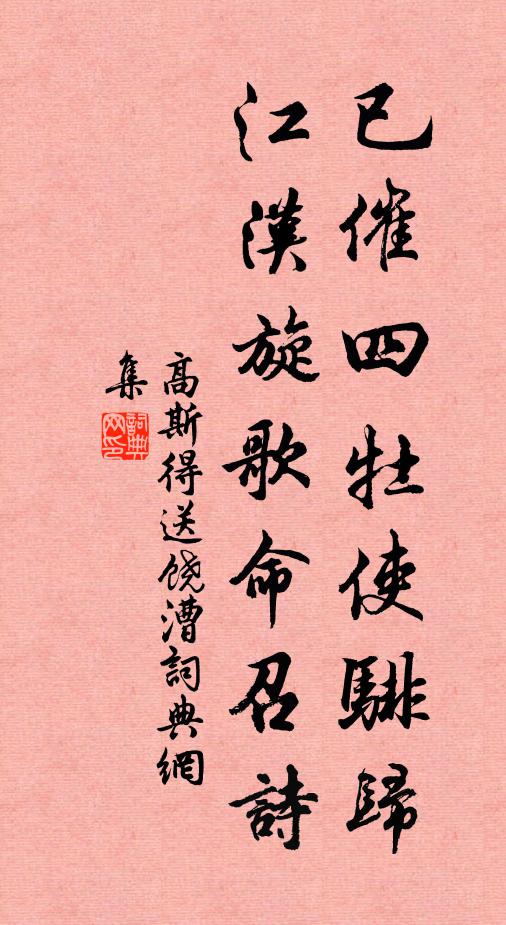 已催四牡使騑歸
江漢旋歌命召詩
高斯得送饶漕詞典網
集
詞典网印